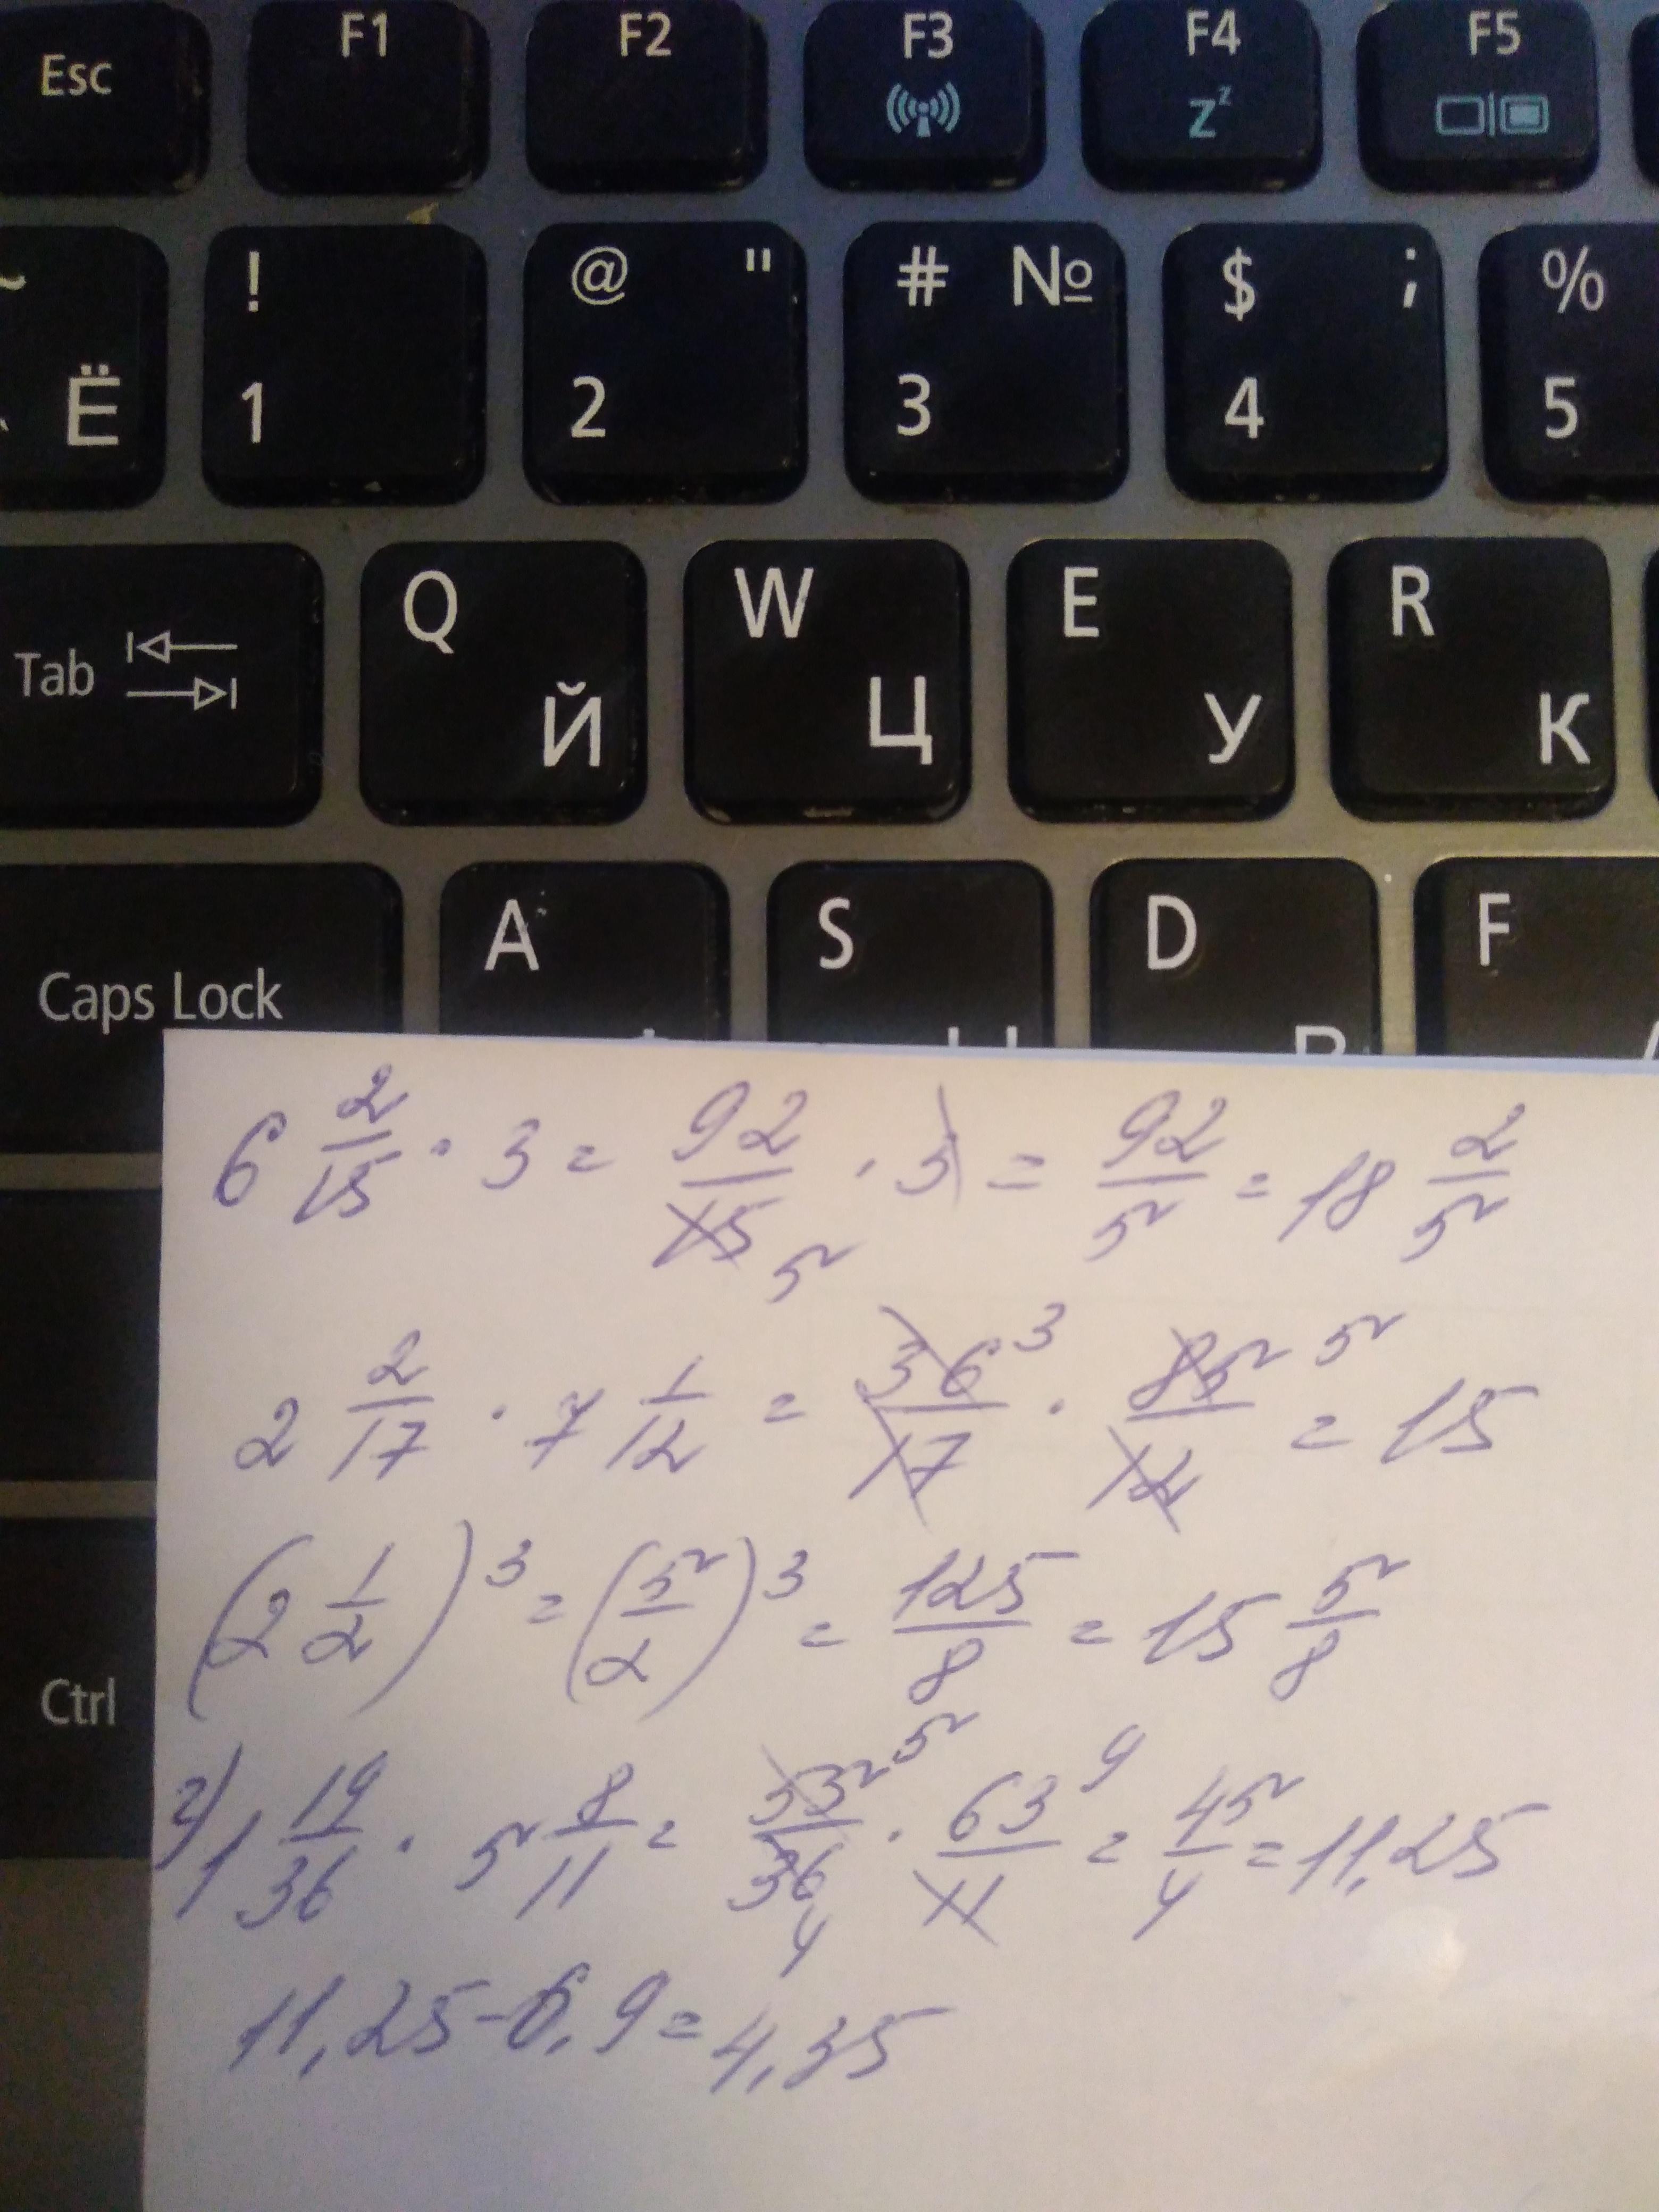 Esc F1 F2 F3 F4 Zz F5
~ Ё ! 1 @ " 2 # № 3 $ ; 4 % 5
Tab Q Й W Ц E У R К
Caps Lock A S D F
Ctrl
6 2/15 · 3 = 92/15 5 · 3 = 92/5 = 18 2/5
2 2/17 · 7 1/12 = 36 3/17 · 85 5/12 = 15
(2 1/2)³ = (5/2)³ = 125/8 = 15 5/8
г) 1 19/36 · 5 8/11 = 55 5/36 4 · 63 9/11 = 45/4 = 11,25
11,25 - 6,9 = 4,35